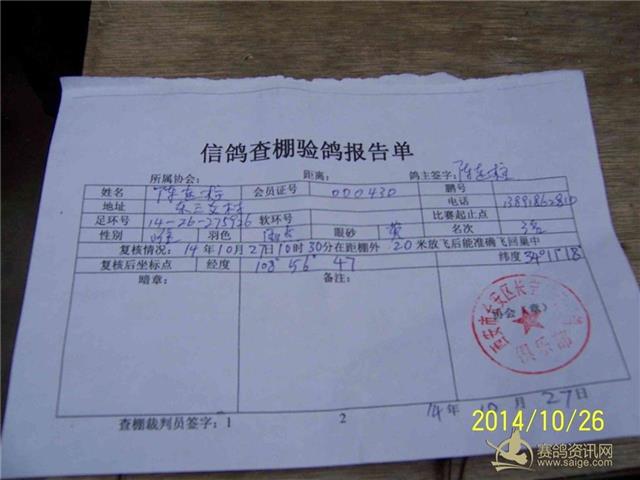 信鸽查棚验鸽报告单
所属协会: 距离: 鸽主签字:
姓名 会员证号 000430 鹏号
地址 东三爻村 电话 13891862810
足环号 14-26-275926 软环号 比赛起止点
性别 雄 羽色 眼砂 黄 名次
复核情况: 14年10月27日10时30分在距棚外 20米放飞后能准确飞回巢中
复核后坐标点 经度 108° 56° 47 纬度 34°11°18
暗章: 备注: 协会(章)
西安市长安区长
俱乐部
14年10月27日
查棚裁判员签字: 1 2
2014/10/26
赛鸽资讯网
www.saige.com